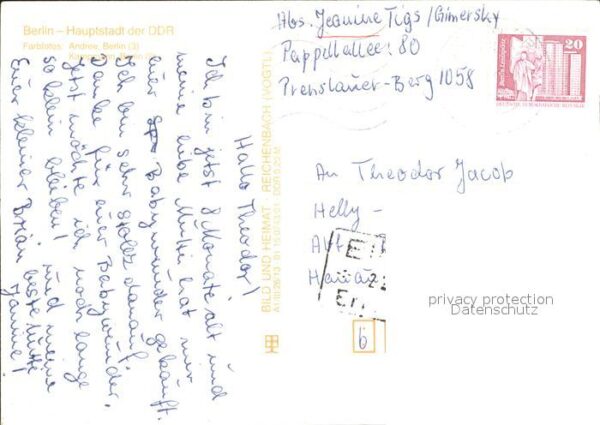 Berlin – Hauptstadt der DDR
Farbfotos: Andree, Berlin (3)
Abs. Jeanine Tigs /Gimersky
Pappelallee 80
Prenslauer-Berg 1058
20
An Theodor Jacob
Helly-
privacy protection
Datenschutz
6
BILD UND HEIMAT · REICHENBACH (VOGTL)
Hallo Theodor!
Ich bin jetzt 8 Monate alt und
meine liebe Mutti hat mir
euer Babywunder gekauft.
Ich bin sehr stolz darauf.
Danke für euer Babywunder.
Jetzt möchte ich noch lange
so klein bleiben! und meine
Euer kleiner Brian beste Mutti
Janine!